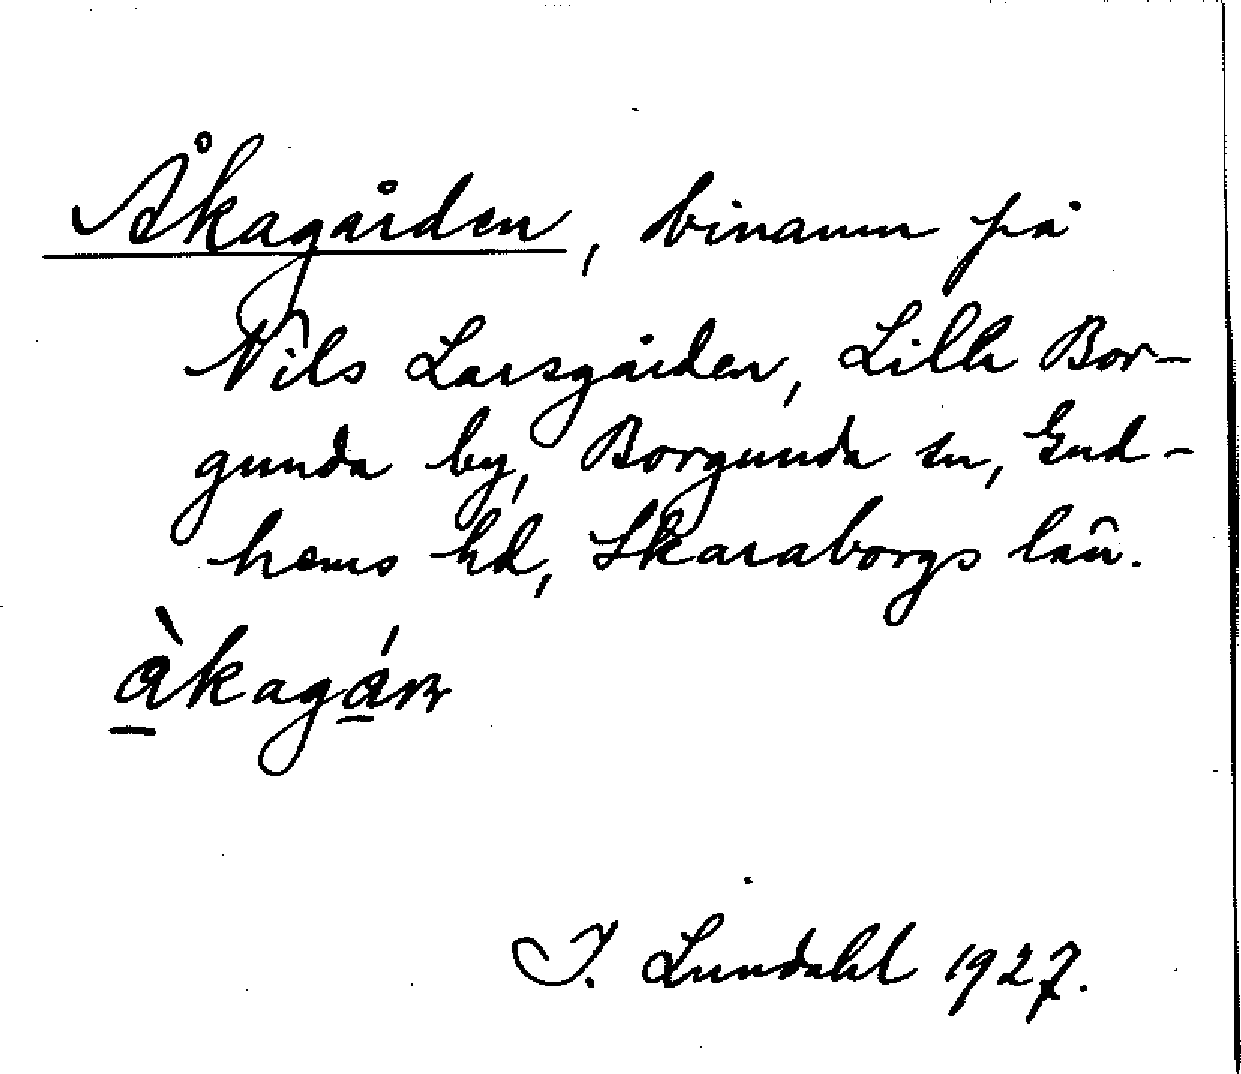 Åkagården, binamn på
Nils Larsgården, Lilla Bor-
gunda by, Borgunda sn, Gud-
hems hd, Skaraborgs län.
I. Lundahl 1927.